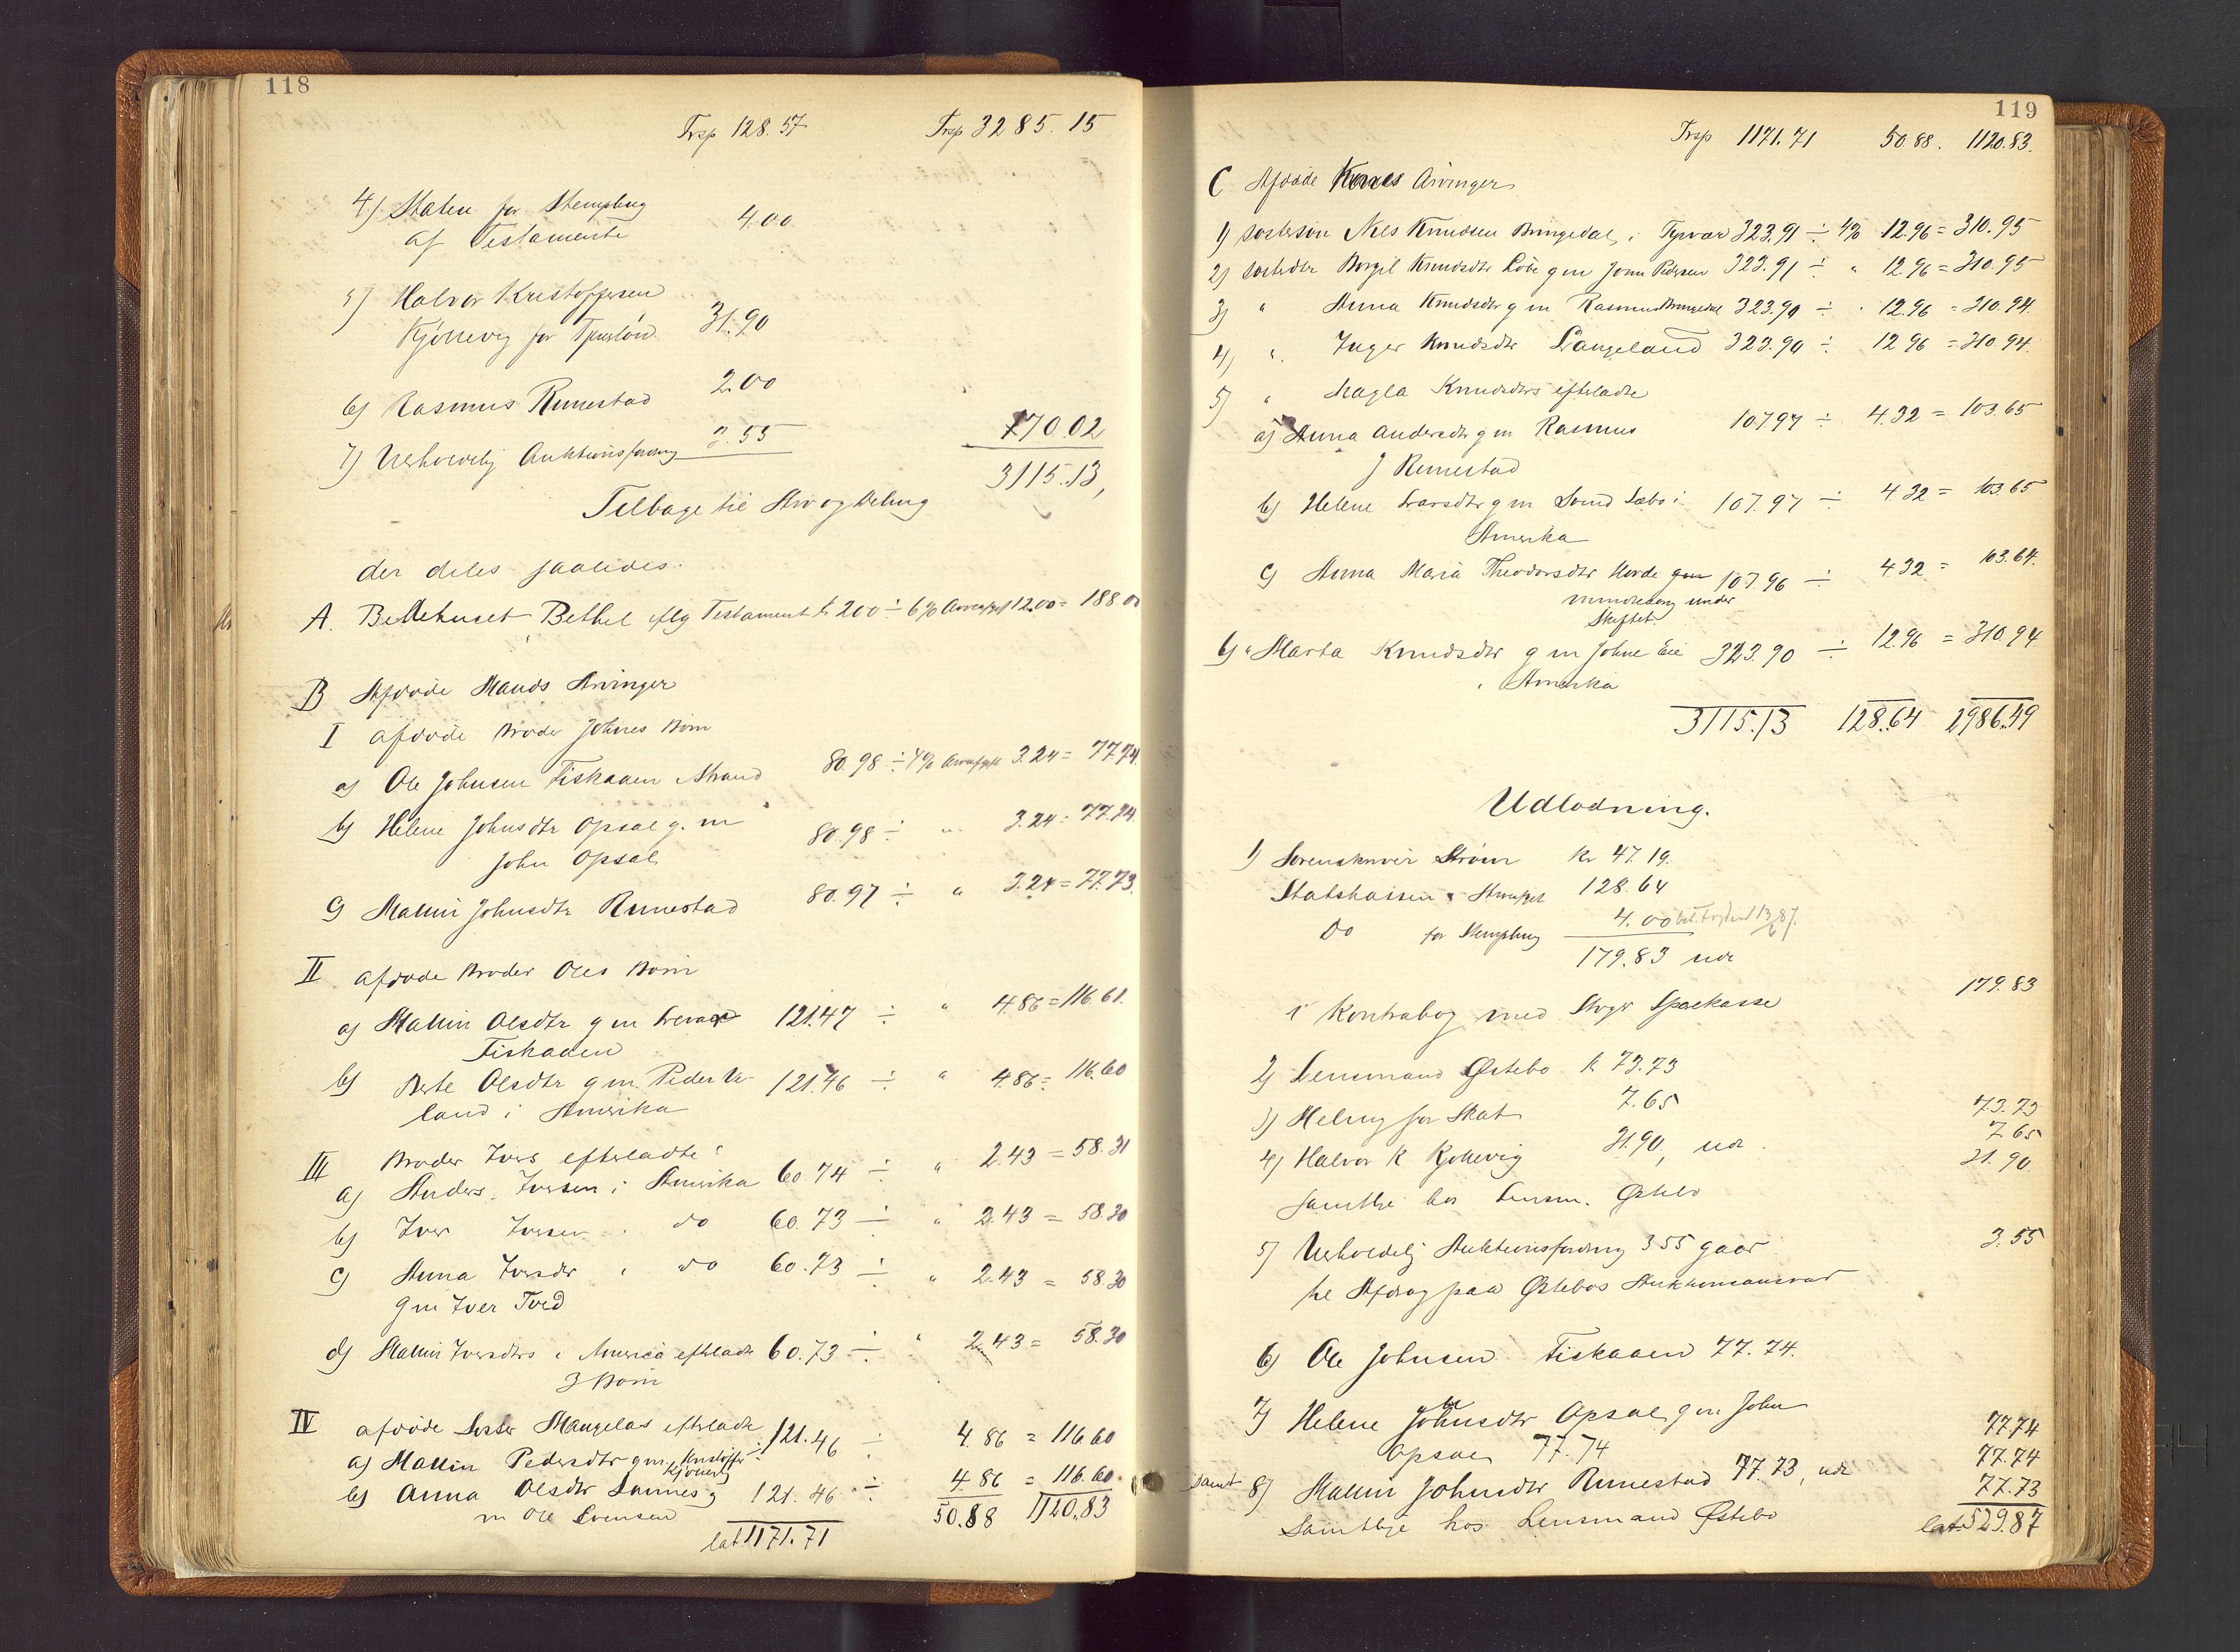 118
Trsp 128.57 Trsp 3285.15
4) Staten for Stempling
af Testamente 4.00
5) Halvor Kristoffersen
Kjøllevig for 31.90
6) Rasmus Runestad 2.00
7) Uerholdelig Auktionsfordring 3.55 170.02
3115.13,
Tilbage til Arv og Deling
der deles saaledes:
A. Bedehuset Bethel iflg Testament k 200 ÷ 6% Arveafgift 12.00 = 188.00
B Afdøde Mands Arvinger
I afdøde Broder Johnes Børn
a) Ole Johnsen Fiskaaen Strand 80.98 ÷ 4% Arveafgift 3.24 = 77.74
b) Helene Johnsdtr Opsal g. m 80.98 ÷ " 3.24 = 77.74
John Opsal
c) Mallin Johnsdtr Runestad 80.97 ÷ " 3.24 = 77.73
II afdøde Broder Oles Børn
a) Mallin Olsdtr g m 121.47 ÷ " 4.86 = 116.61.
Fiskaaen
b) Berte Olsdtr g m Peder 121.46 ÷ " 4.86 = 116.60
land i Amerika
III Broder Ivers efterladte:
a) Anders Iversen i Amerika 60.74 ÷ " 2.43 = 58.31
b) Iver Iversen i do 60.73 ÷ " 2.43 = 58.30
c) Anna Iversdtr i do 60.73 ÷ " 2.43 = 58.30
g m Iver
d) Mallin Iversdtrs i America efterladte 60.73 ÷ " 2.43 = 58.30
3 Børn
IV afdøde Søster Mangelas efterladte
a) Mallin Pedersdtr g m Kristoffer 121.46 ÷ 4.86 = 116.60
Kjøllevig
b) Anna Olsdtr Sannes g 121.46 ÷ 4.86 = 116.60
m Ole Svensen
lat. 1171.71 50.88 1120.83
119
Trsp 1171.71 50.88. 1120.83.
C Afdøde Kones Arvinger
1) Søsterson Nils Knudsen Bringedal i Tysvær 323.91 ÷ 4% 12.96 = 310.95
2) Søsterdtr Borgil Knudsdtr g m John Pedersen 323.91 ÷ " 12.96 = 310.95
3) " Anna Knudsdtr g m Rasmus Bringedal 323.90 ÷ " 12.96 = 310.94
4) " Inger Knudsdtr Langeland 323.90 ÷ 12.96 = 310.94.
5) " Magla Knudsdtrs efterladte
a) Anna Andersdtr g m Rasmus 107.97 ÷ 4.32 = 103.65
J Runestad
b) Helene Larsdtr g m Svend Sæbø i 107.97 ÷ 4.32 = 103.65
Amerika
c) Anna Maria Theodorsdtr 107.96 ÷ 4.32 = 103.64.
under
Skiftet.
6) " Marta Knudsdtr g m Johne Eie 323.90 ÷ 12.96 = 310.94
i Amerika
3115.13 128.64 2986.49
Udlodning.
1) Sorenskriver Strøm Kr 47.19.
Statskassen i Arveafgift 128.64
Do for Stempling 4.00
179.83 udl
i Kontrabog med Sparekasse 179.83
2) Lensmand Østebø k 73.73
3) Helvig for Skat 7.65 73.73
4) Halvor K Kjøllevig 31.90, udl. 7.65
31.90
samtlige hos Lensm. Østebø
5) Uerholdelig Auktionsfordring 3.55 gaar 3.55
til Afdrag paa Østebøs Auktionsansvar
6) Ole Johnsen Fiskaaen 77.74.
7) Helene Johnsdtr Opsal, g m John 77.74
Opsal 77.74 77.74
samt 8) Mallin Johnsdtr Runestad 77.73, udl 77.73
Samtlige hos Lensmand Østebø lat. 529.87